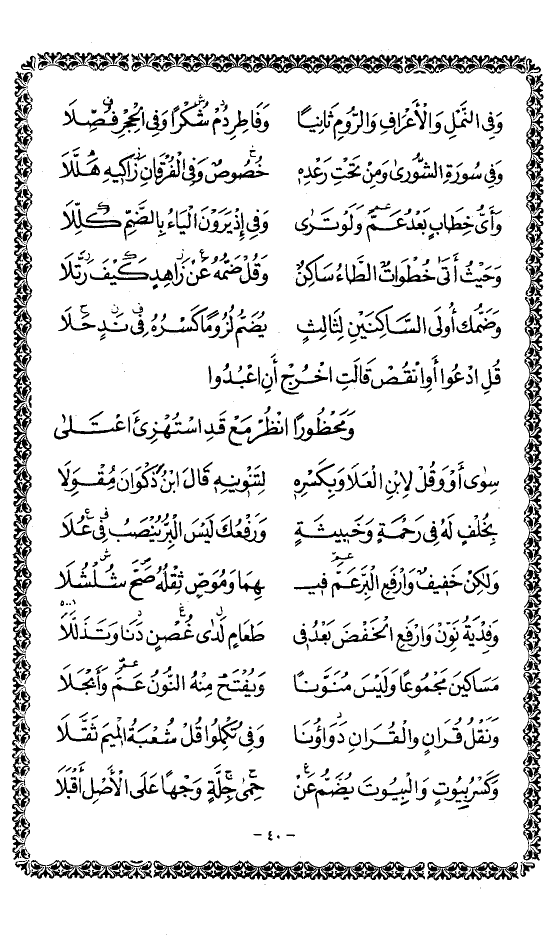 وَفِي النَّمْلِ وَالْأَعْرَافِ وَالرُّومِ ثَانِيًا وَفَاطِرِ دُمْ شُكْرًا وَفِي الْحِجْرِ فُصِّلَا
وَفِي سُورَةِ الشُّورَى وَمِنْ تَحْتِ رَعْدِهِ خُصُوصٌ وَفِي الْفُرْقَانِ زَاكِيهِ هَلَّلَا
وَأَيُّ خِطَابٍ بَعْدُ عَمَّ وَلَوْ تَرَى وَفِي إِذْ يَرَوْنَ الْيَاءُ بِالضَّمِّ كُلِّلَا
وَحَيْثُ أَتَى خُطْوَاتٌ الطَّاءُ سَاكِنٌ وَقُلْ ضَمُّهُ عَنْ زَاهِدٍ كَيْفَ رَتَّلَا
وَضَمُّكَ أُولَى السَّاكِنَيْنِ لِثَالِثٍ يُضَمُّ لُزُومًا كَسْرُهُ فِي نَدٍ حَلَا
قُلِ ادْعُوا أَوِ انْقُصْ قَالَتِ اخْرُجْ أَنِ اعْبُدُوا
وَمَحْظُورًا انْظُرْ مَعْ قَدِ اسْتُهْزِئَ اعْتَلَى
سِوَى أَوْ وَقُلْ لِابْنِ الْعَلَا وَبِكَسْرِهِ لِتَنْوِينِهِ قَالَ ابْنُ ذَكْوَانَ مُقْوِلَا
بِخُلْفٍ لَهُ فِي رَحْمَةٍ وَخَبِيثَةٍ وَرَفْعُكَ لَيْسَ الْبِرُّ يُنْصَبُ فِي عُلَا
وَلَكِنْ خَفِيفٌ وَارْفَعِ الْبِرَّ عَمَّ فِيـ بِهِمَا وَمُوَصٍّ ثِقْلُهُ صَحَّ شُلْشُلَا
وَفِدْيَةُ نَوِّنْ وَارْفَعِ الْخَفْضَ بَعْدُ فِي طَعَامٍ لَدَى غُصْنٍ دَنَا وَتَذَلَّلَا
مَسَاكِينَ مَجْمُوعًا وَلَيْسَ مُنَوَّنًا وَيُفْتَحُ مِنْهُ النُّونُ عَمَّ وَأَبْجَلَا
وَنَقْلُ قُرَانٍ وَالْقُرَانِ دَوَاؤُنَا وَفِي تُكْمِلُوا قُلْ شُعْبَةُ الْمِيمَ ثَقَّلَا
وَكَسْرُ بُيُوتٍ وَالْبُيُوتَ يُضَمُّ عَنْ حِمَى جِلَّةٍ وَجْهًا عَلَى الْأَصْلِ أَقْبَلَا
- ٤٠ -